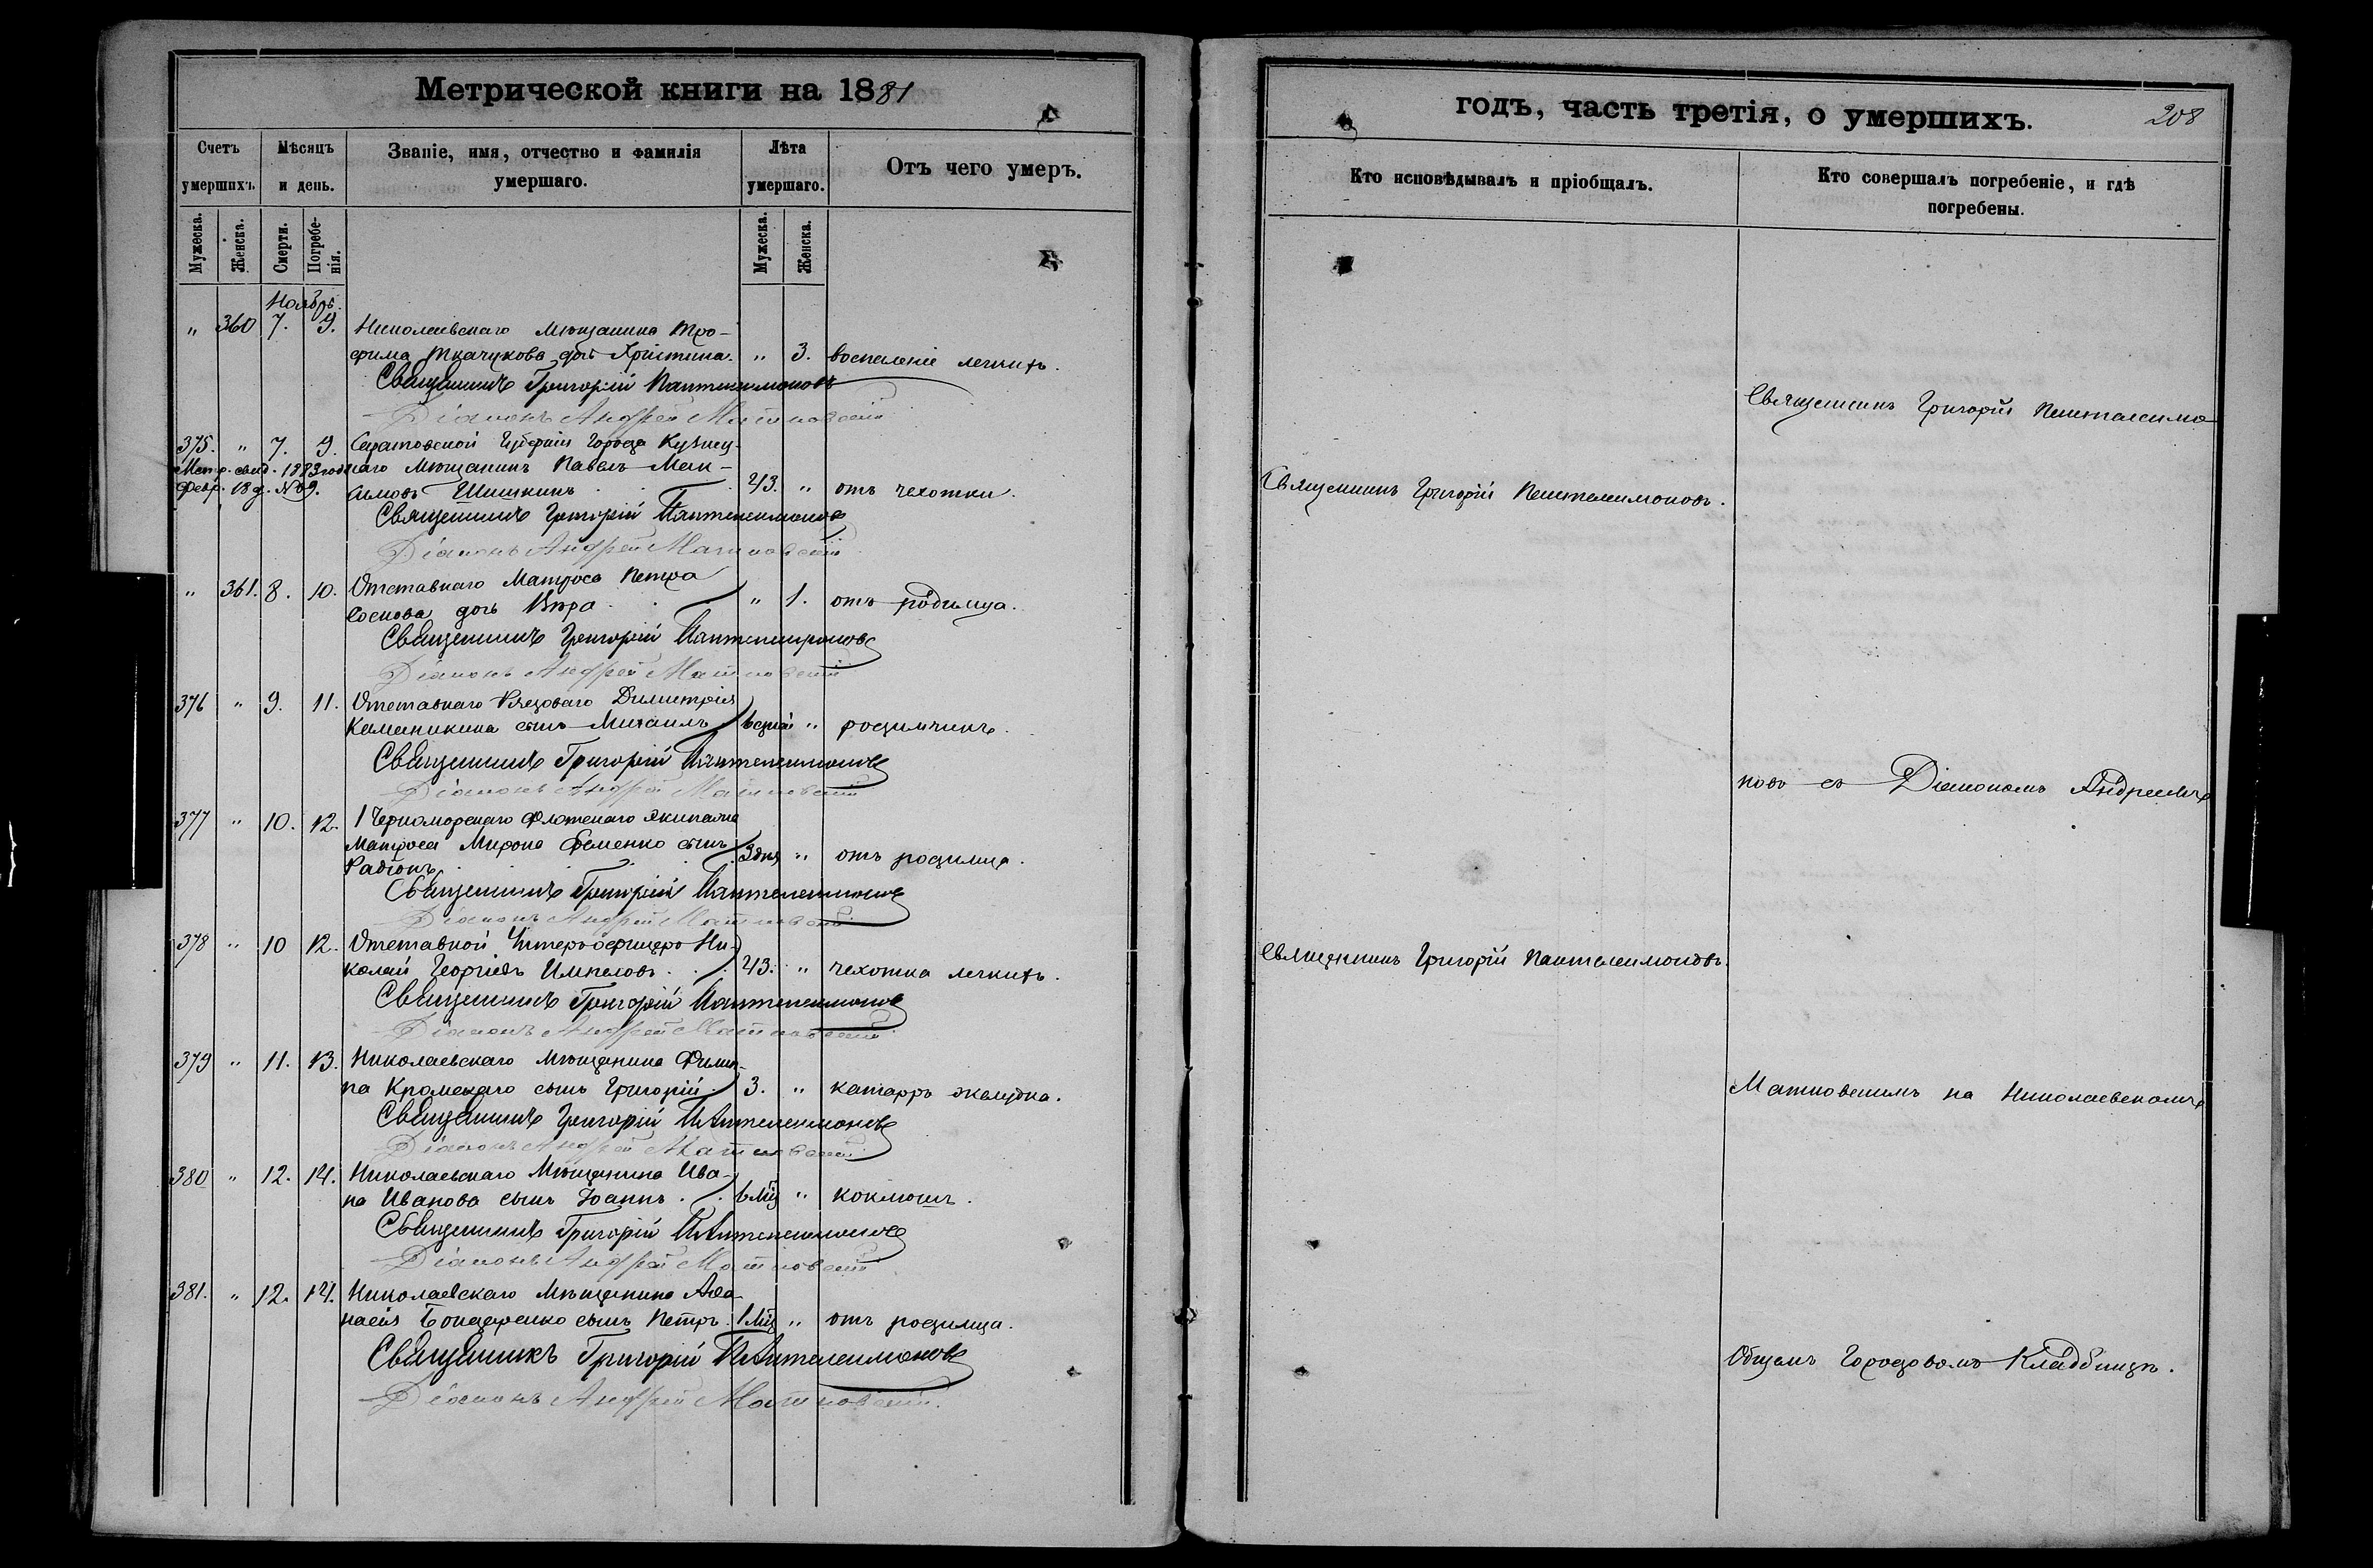 Метрической книги на 1881
Счетъ умершихъ.
Мѣсяцъ и день.
Званіе, имя, отчество и фамилія умершаго.
Лѣта умершаго.
Отъ чего умеръ.
Мужеска.
Женска.
Смерти.
Погребенія.
Мужеска.
Женска.
Ноябрь.
" 360 7. 9. Николаевскаго Мѣщанина Тро-
фима Ткачукова дочь Христина. " 3. воспаленіе легкихъ.
Священникъ Григорій Пантелеимоновъ
Діаконъ Андрей Матковскій
375. " 7. 9. Саратовской Губерніи Города Кузнец-
Метр. свид. 1883 года каго Мѣщанинъ Павелъ Мак-
февр. 18 д. № 9. симовъ Шишкинъ 43. " отъ чахотки.
Священникъ Григорій Пантелеимоновъ
Діаконъ Андрей Матковскій
" 361. 8. 10. Отставнаго Матроса Петра
Соснова дочь Вѣра " 1. отъ родимца.
Священникъ Григорій Пантелеимоновъ
Діаконъ Андрей Матковскій
376 " 9. 11. Отставнаго Рядоваго Димитрія
сынъ Михаилъ " родимчикъ.
Священникъ Григорій Пантелеимоновъ
Діаконъ Андрей Матковскій
377 " 10. 12. 1 Черноморскаго Флотскаго Экипажа
Матроса Мирона Фоменко сынъ 3 дня " отъ родимца.
Радіонъ
Священникъ Григорій Пантелеимоновъ
Діаконъ Андрей Матковскій
378 " 10 12. Отставной Унтеръ-офицеръ Ни-
колай Георгіевъ 43. " чехотка легкихъ.
Священникъ Григорій Пантелеимоновъ
Діаконъ Андрей Матковскій
379 " 11. 13. Николаевскаго Мѣщанина Филип-
па сынъ Григорій 3. " катарръ желудка.
Священникъ Григорій Пантелеимоновъ
Діаконъ Андрей Матковскій
380 " 12. 14. Николаевскаго Мѣщанина Ива-
на Иванова сынъ Іоаннъ 6 мц " коклюшъ.
Священникъ Григорій Пантелеимоновъ
Діаконъ Андрей Матковскій
381. " 12. 14. Николаевскаго Мѣщанина Аѳа-
насія Бондаренко сынъ Петръ. 1 мц " отъ родимца.
Священникъ Григорій Пантелеимоновъ
Діаконъ Андрей Матковскій
годъ, часть третія, о умершихъ.
208
Кто исповѣдывалъ и пріобщалъ.
Кто совершалъ погребеніе, и гдѣ погребены.
Священникъ Григорій Пантелеимо-
Священникъ Григорій Пантелеимоновъ.
новъ съ Діакономъ Андреемъ
Священникъ Григорій Пантелеимоновъ.
Матковскимъ на Николаевскомъ
Общемъ Городовомъ Кладбищѣ.